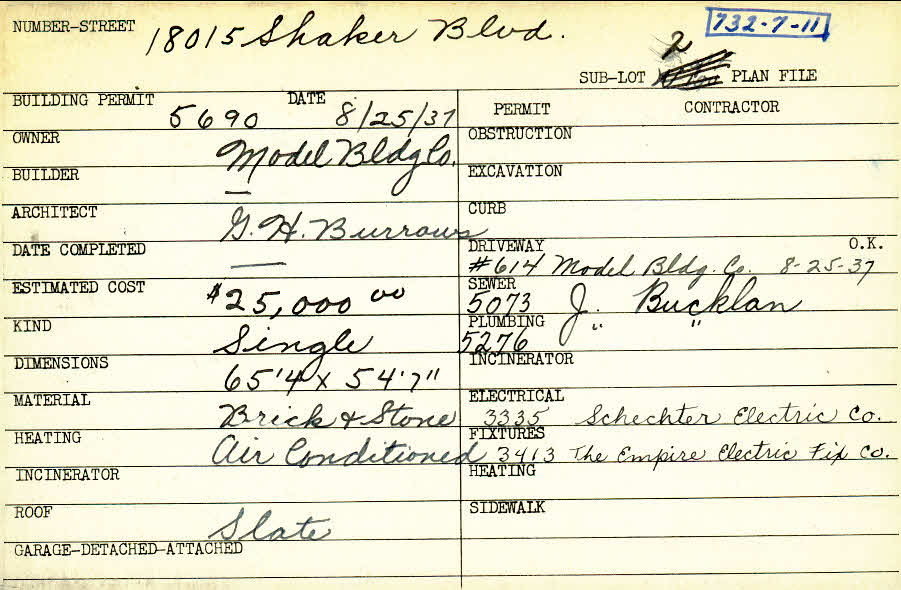 NUMBER-STREET 18015 Shaker Blvd. 732-7-11
2
SUB-LOT PLAN FILE
BUILDING PERMIT 5690 DATE 8/25/37
OWNER Model Bldg Co.
BUILDER —
ARCHITECT G. H. Burrows
DATE COMPLETED —
ESTIMATED COST $25,000 00
KIND Single
DIMENSIONS 65'4 x 54'7"
MATERIAL Brick & Stone
HEATING Air Conditioned
INCINERATOR
ROOF Slate
GARAGE-DETACHED-ATTACHED
PERMIT CONTRACTOR
OBSTRUCTION
EXCAVATION
CURB
DRIVEWAY O.K.
#614 Model Bldg. Co. 8-25-37
SEWER
5073 J. Bucklan
PLUMBING
5276 " "
INCINERATOR
ELECTRICAL
3335 Schechter Electric Co.
FIXTURES
3413 The Empire Electric Fix Co.
HEATING
SIDEWALK